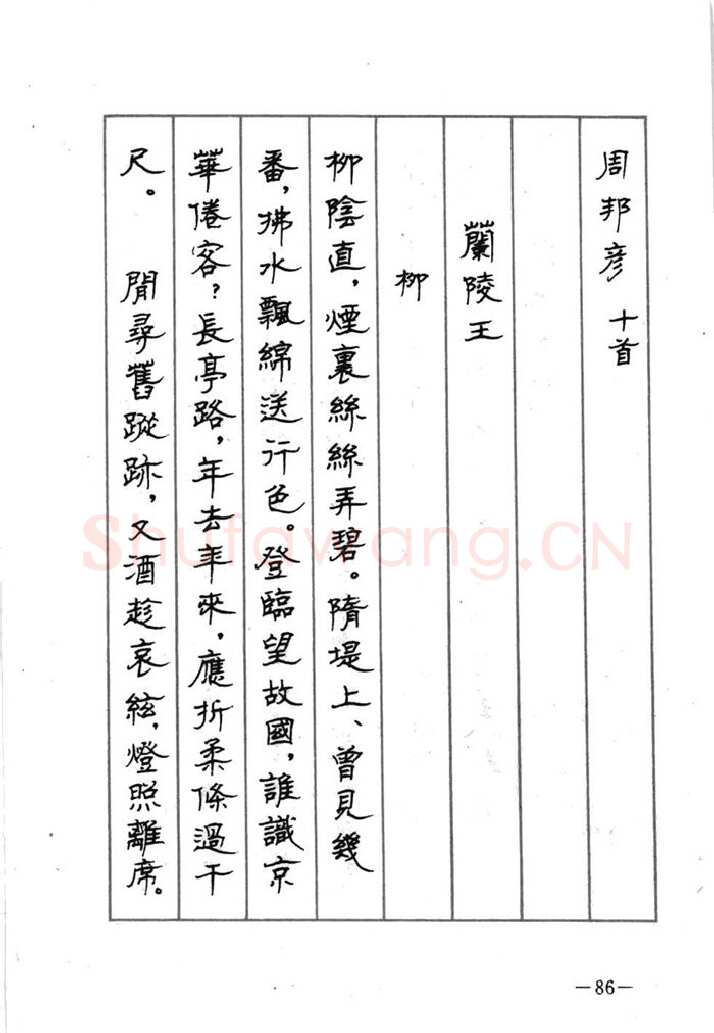 周邦彦 十首
蘭陵王
柳
柳陰直，煙裏絲絲弄碧。隋堤上、曾見幾
番，拂水飄綿送行色。登臨望故國，誰識京
華倦客？長亭路，年去年來，應折柔條過千
尺。 閒尋舊蹤跡，又酒趁哀絃，燈照離席。
—86—
Shufawang.CN